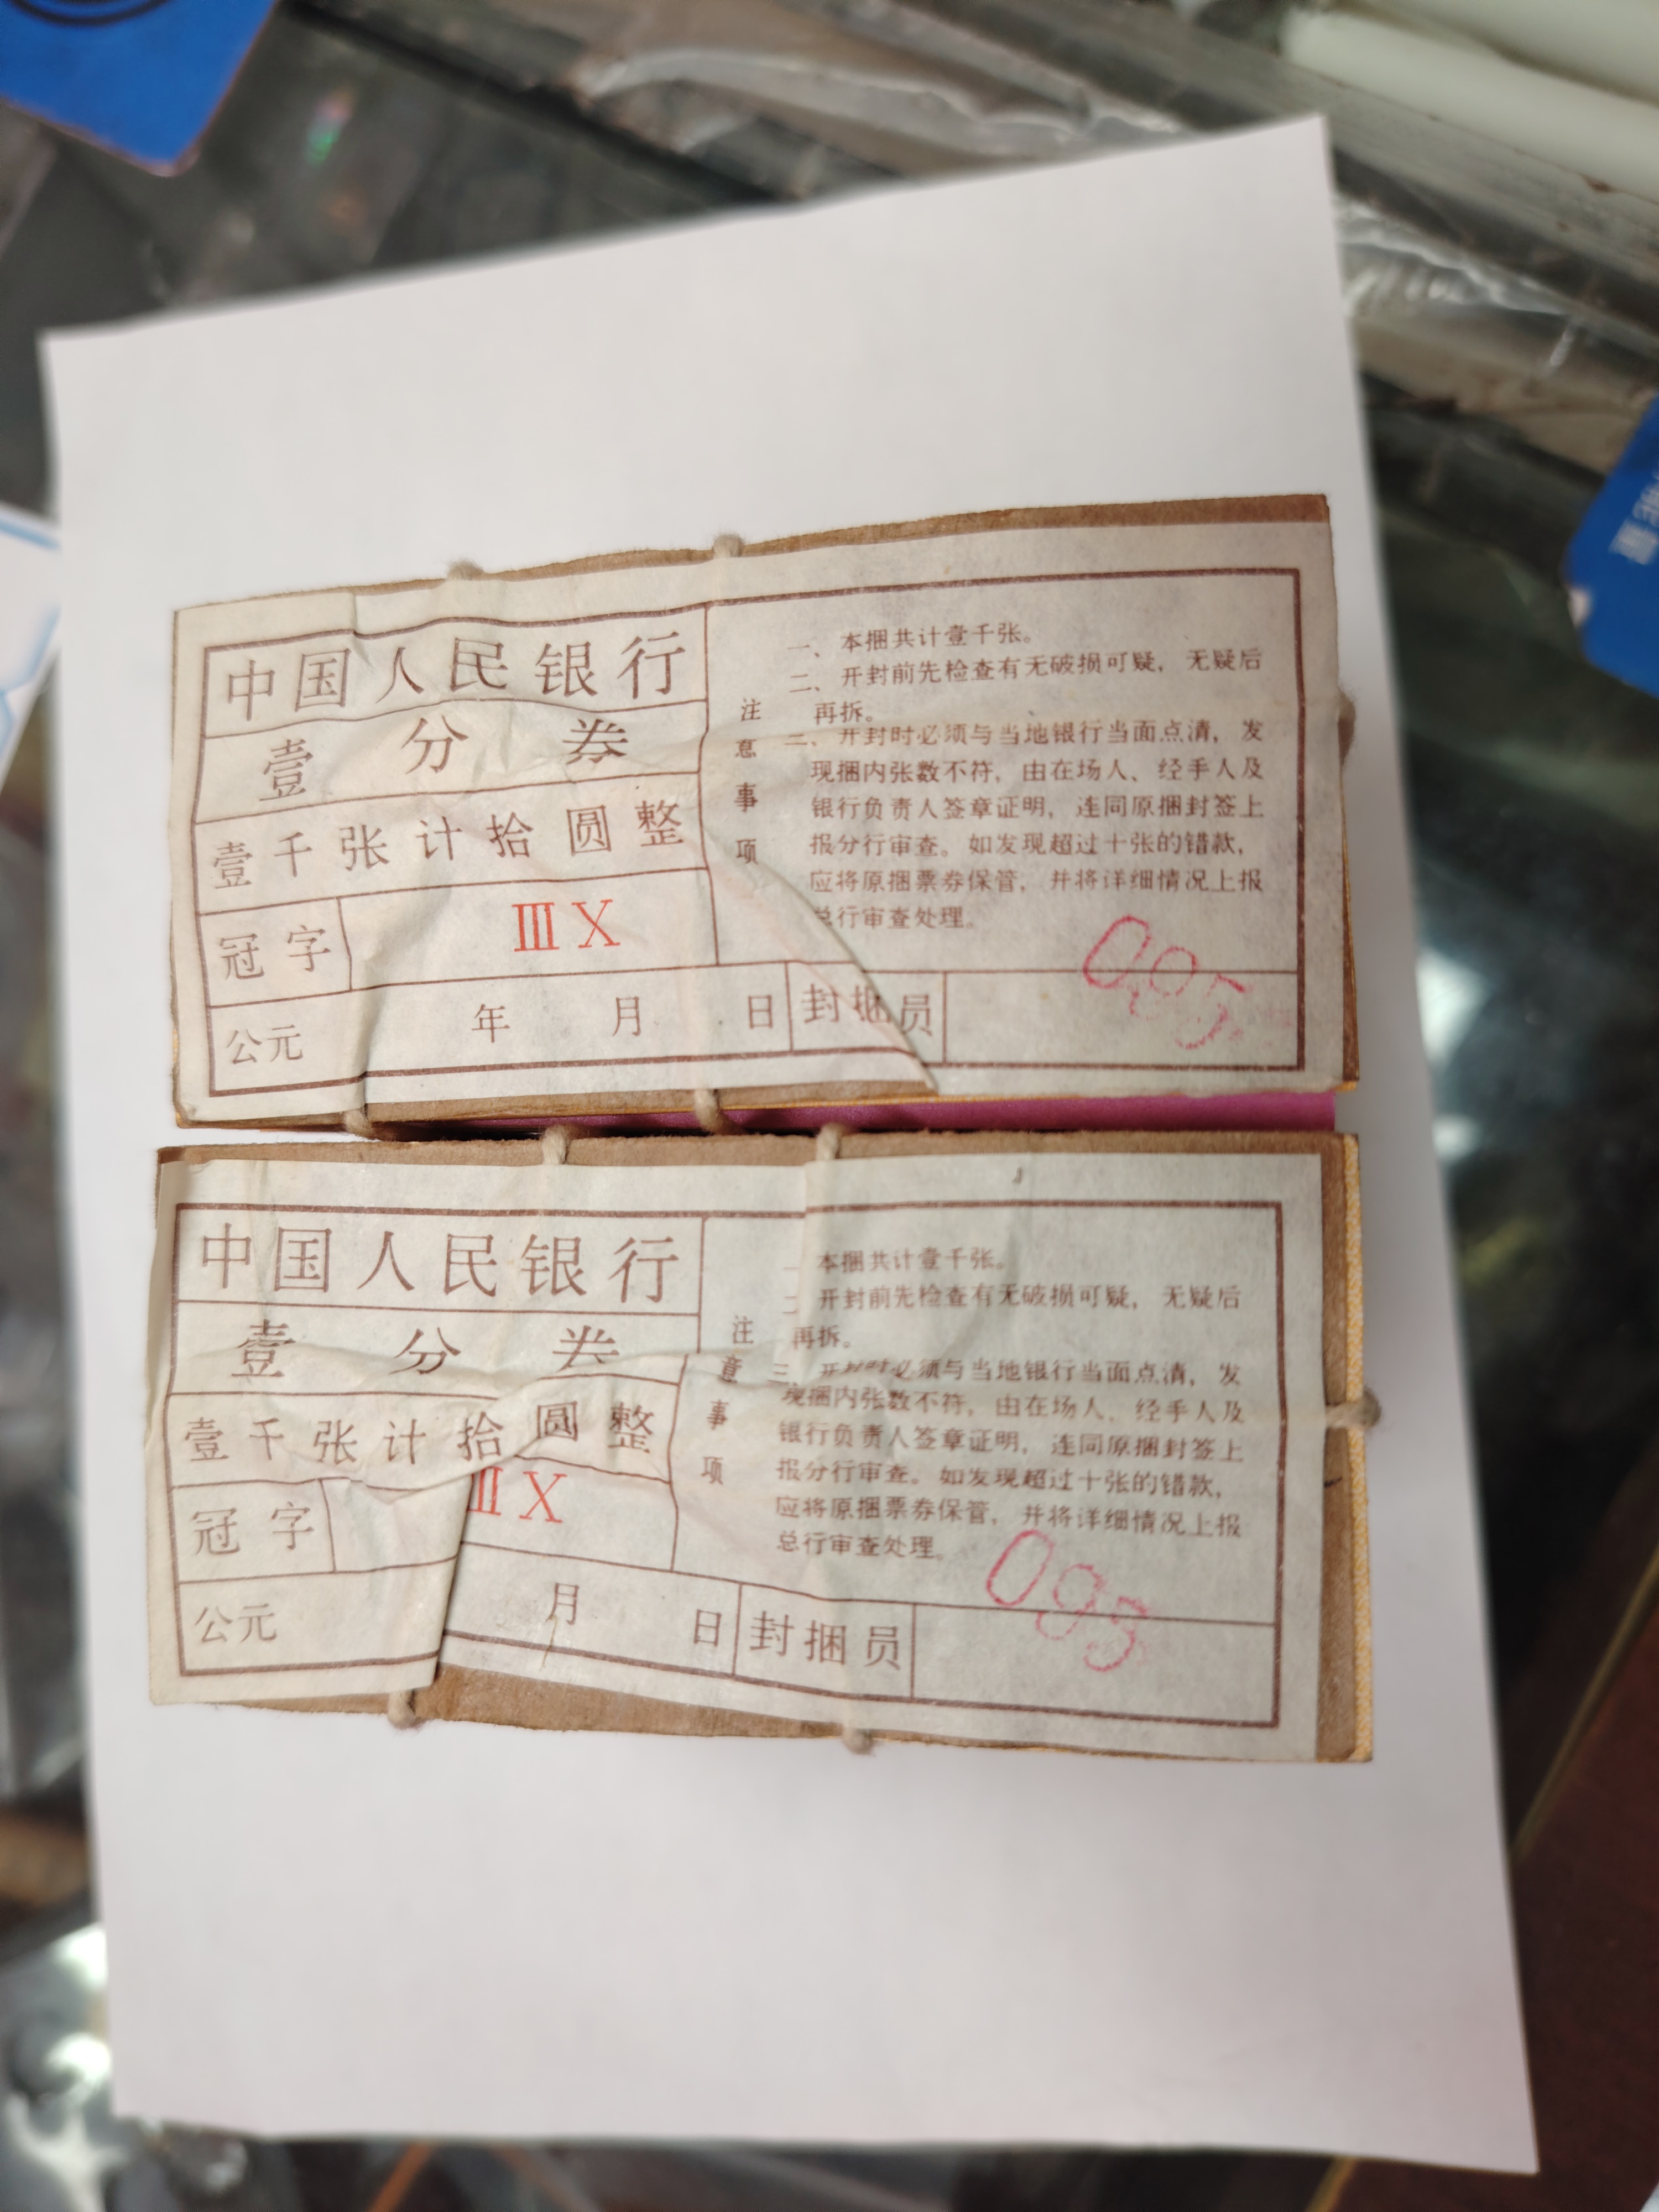 中国人民银行
壹分券
壹千张计拾圆整
冠字 ⅢⅩ
公元 年 月 日 封捆员
注意事项
一、本捆共计壹千张。
二、开封前先检查有无破损可疑，无疑后
再拆。
三、开封时必须与当地银行当面点清，发
现捆内张数不符，由在场人、经手人及
银行负责人签章证明，连同原捆封签上
报分行审查。如发现超过十张的错款，
应将原捆票券保管，并将详细情况上报
总行审查处理。
095
中国人民银行
壹分券
壹千张计拾圆整
冠字 ⅢⅩ
公元 月 日 封捆员
注意事项
一 本捆共计壹千张。
二 开封前先检查有无破损可疑，无疑后
再拆。
三、开封时必须与当地银行当面点清，发
现捆内张数不符，由在场人、经手人及
银行负责人签章证明，连同原捆封签上
报分行审查。如发现超过十张的错款，
应将原捆票券保管，并将详细情况上报
总行审查处理。
095